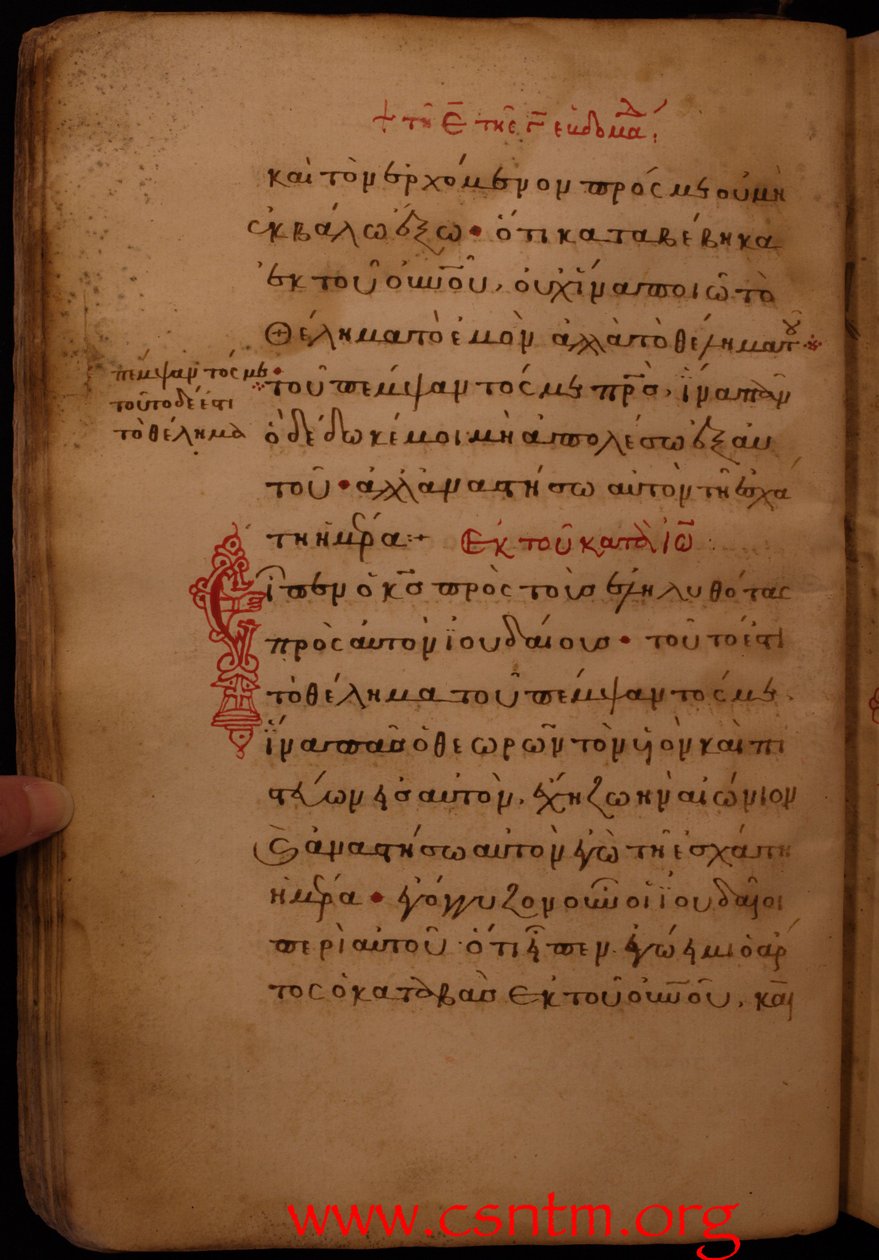 τῇ ε τῆς γ ἑβδομάδ
καὶ τὸν ἐρχόμενον πρός με οὐ μὴ
ἐκβάλω ἔξω· ὅτι καταβέβηκα
ἐκ τοῦ οὐνοῦ, οὐχ ἵνα ποιῶ τὸ
θέλημα τὸ ἐμὸν ἀλλὰ τὸ θέλημα τοῦ
πέμψαντός με
τοῦτο δέ ἐστι
τὸ θέλημα
τοῦ πέμψαντός με πρσ, ἵνα πᾶν
ὃ δέδωκέ μοι μὴ ἀπολέσω ἐξ αὐ
τοῦ· ἀλλὰ ἀναστήσω αὐτὸν τῇ ἐσχά
τῃ ἡμέρα
Ἐκ τοῦ κατὰ Ἰω
Εἶπεν ὁ κς πρὸς τοὺς ἐληλυθότας
πρὸς αὐτὸν ἰουδαίους· τοῦτό ἐστι
τὸ θέλημα τοῦ πέμψαντός με.
ἵνα πᾶς ὁ θεωρῶν τὸν υἱὸν καὶ πι
στεύων εἰς αὐτὸν, ἔχη ζωὴν αἰώνιον
καὶ ἀναστήσω αὐτὸν ἐγὼ τῇ ἐσχάτη
ἡμέρα· ἐγόγγυζον οὖν οἱ ἰουδαῖοι
περὶ αὐτοῦ ὅτι εἶπεν ἐγώ εἰμι ὁ ἄρ
τος ὁ καταβὰς ἐκ τοῦ οὐνοῦ, καὶ
www.csntm.org